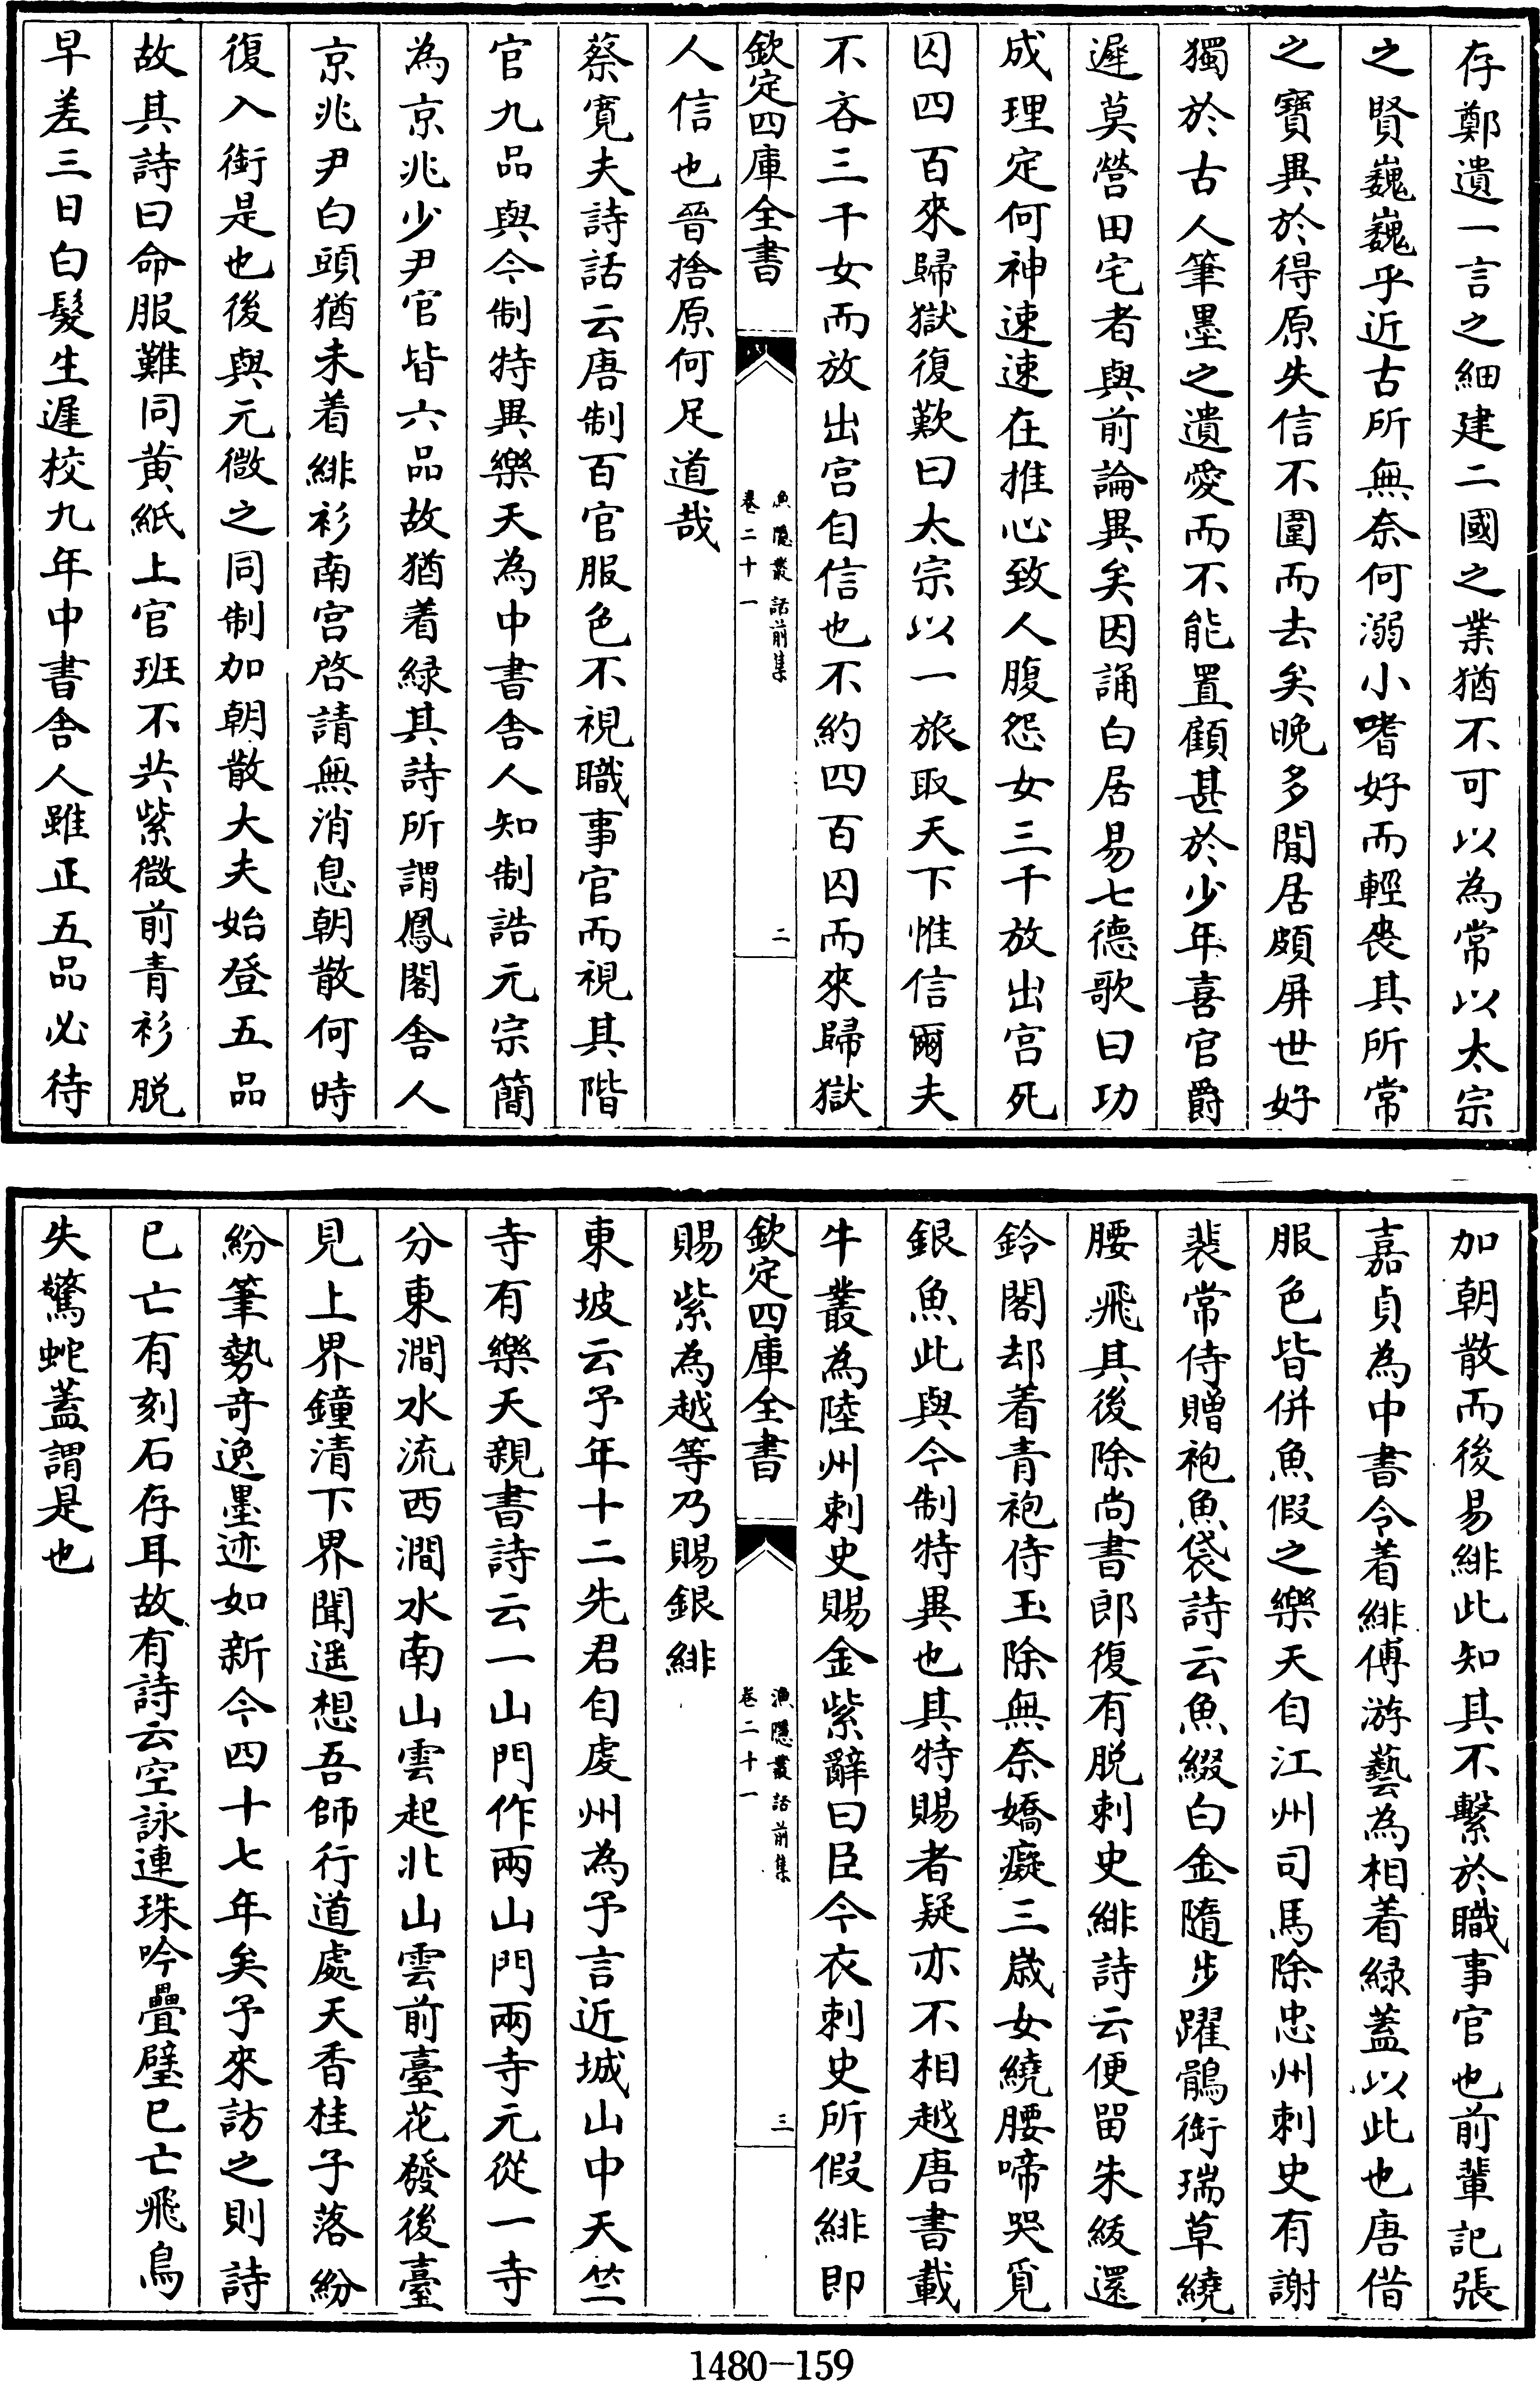 存鄭遺一言之細建二國之業猶不可以為常以太宗
之賢巍巍乎近古所無奈何溺小嗜好而輕喪其所常
之寶異於得原失信不圍而去矣晚多閒居頗屏世好
獨於古人筆墨之遺愛而不能置顧甚於少年喜官爵
遲莫營田宅者與前論異矣因誦白居易七德歌曰功
成理定何神速速在推心致人腹怨女三千放出宫死
囚四百來歸獄復歎曰太宗以一旅取天下惟信爾夫
不吝三千女而放出宫自信也不約四百囚而來歸獄
欽定四庫全書
漁隱叢話前集
卷二十一
二
人信也晉捨原何足道哉
蔡寛夫詩話云唐制百官服色不視職事官而視其階
官九品與今制特異樂天為中書舍人知制誥元宗簡
為京兆少尹官皆六品故猶着緑其詩所謂鳳閣舍人
京兆尹白頭猶未着緋衫南宫啓請無消息朝散何時
復入銜是也後與元微之同制加朝散大夫始登五品
故其詩曰命服難同黄紙上官班不共紫微前青衫脱
早差三日白髮生遲校九年中書舍人雖正五品必待
加朝散而後易緋此知其不繫於職事官也前輩記張
嘉貞為中書令着緋傅游藝為相着緑蓋以此也唐借
服色皆併魚假之樂天自江州司馬除忠州刺史有謝
裴常侍贈袍魚袋詩云魚綴白金隨步躍鶻銜瑞草繞
腰飛其後除尚書郎復有脱刺史緋詩云便留朱紱還
鈴閣却着青袍侍玉除無奈嬌癡三歲女繞腰啼哭覓
銀魚此與今制特異也其特賜者疑亦不相越唐書載
牛叢為陸州刺史賜金紫辭曰臣今衣刺史所假緋即
欽定四庫全書
漁隱叢話前集
卷二十一
三
賜紫為越等乃賜銀緋
東坡云予年十二先君自虔州為予言近城山中天竺
寺有樂天親書詩云一山門作兩山門兩寺元從一寺
分東澗水流西澗水南山雲起北山雲前臺花發後臺
見上界鐘清下界聞遥想吾師行道處天香桂子落紛
紛筆勢竒逸墨迹如新今四十七年矣予來訪之則詩
已亡有刻石存耳故有詩云空詠連珠吟疊璧已亡飛鳥
失驚蛇蓋謂是也
1480-159